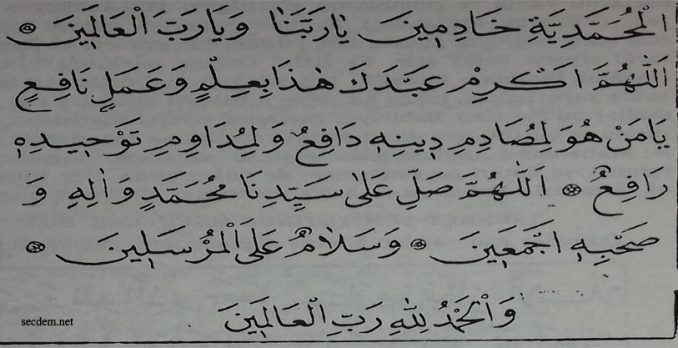 الْمُحَمَّدِيَّةِ خَادِمِينَ يَارَبَّنَا وَيَارَبَّ الْعَالَمِينَ ۞
اَللّٰهُمَّ اَكْرِمْ عَبْدَكَ هٰذَا بِعِلْمٍ وَعَمَلٍ نَافِعٍ
يَامَنْ هُوَ لِمُصَادِمِ دِينِهِ دَافِعٌ وَلِمُدَاوِمِ تَوْحِيدِهِ
رَافِعٌ ۞ اَللّٰهُمَّ صَلِّ عَلٰى سَيِّدِنَا مُحَمَّدٍ وَاٰلِهِ وَ
صَحْبِهِ اَجْمَعِينَ ۞ وَسَلَامٌ عَلَى الْمُرْسَلِينَ ۞
وَالْحَمْدُ لِلّٰهِ رَبِّ الْعَالَمِينَ
secdem.net